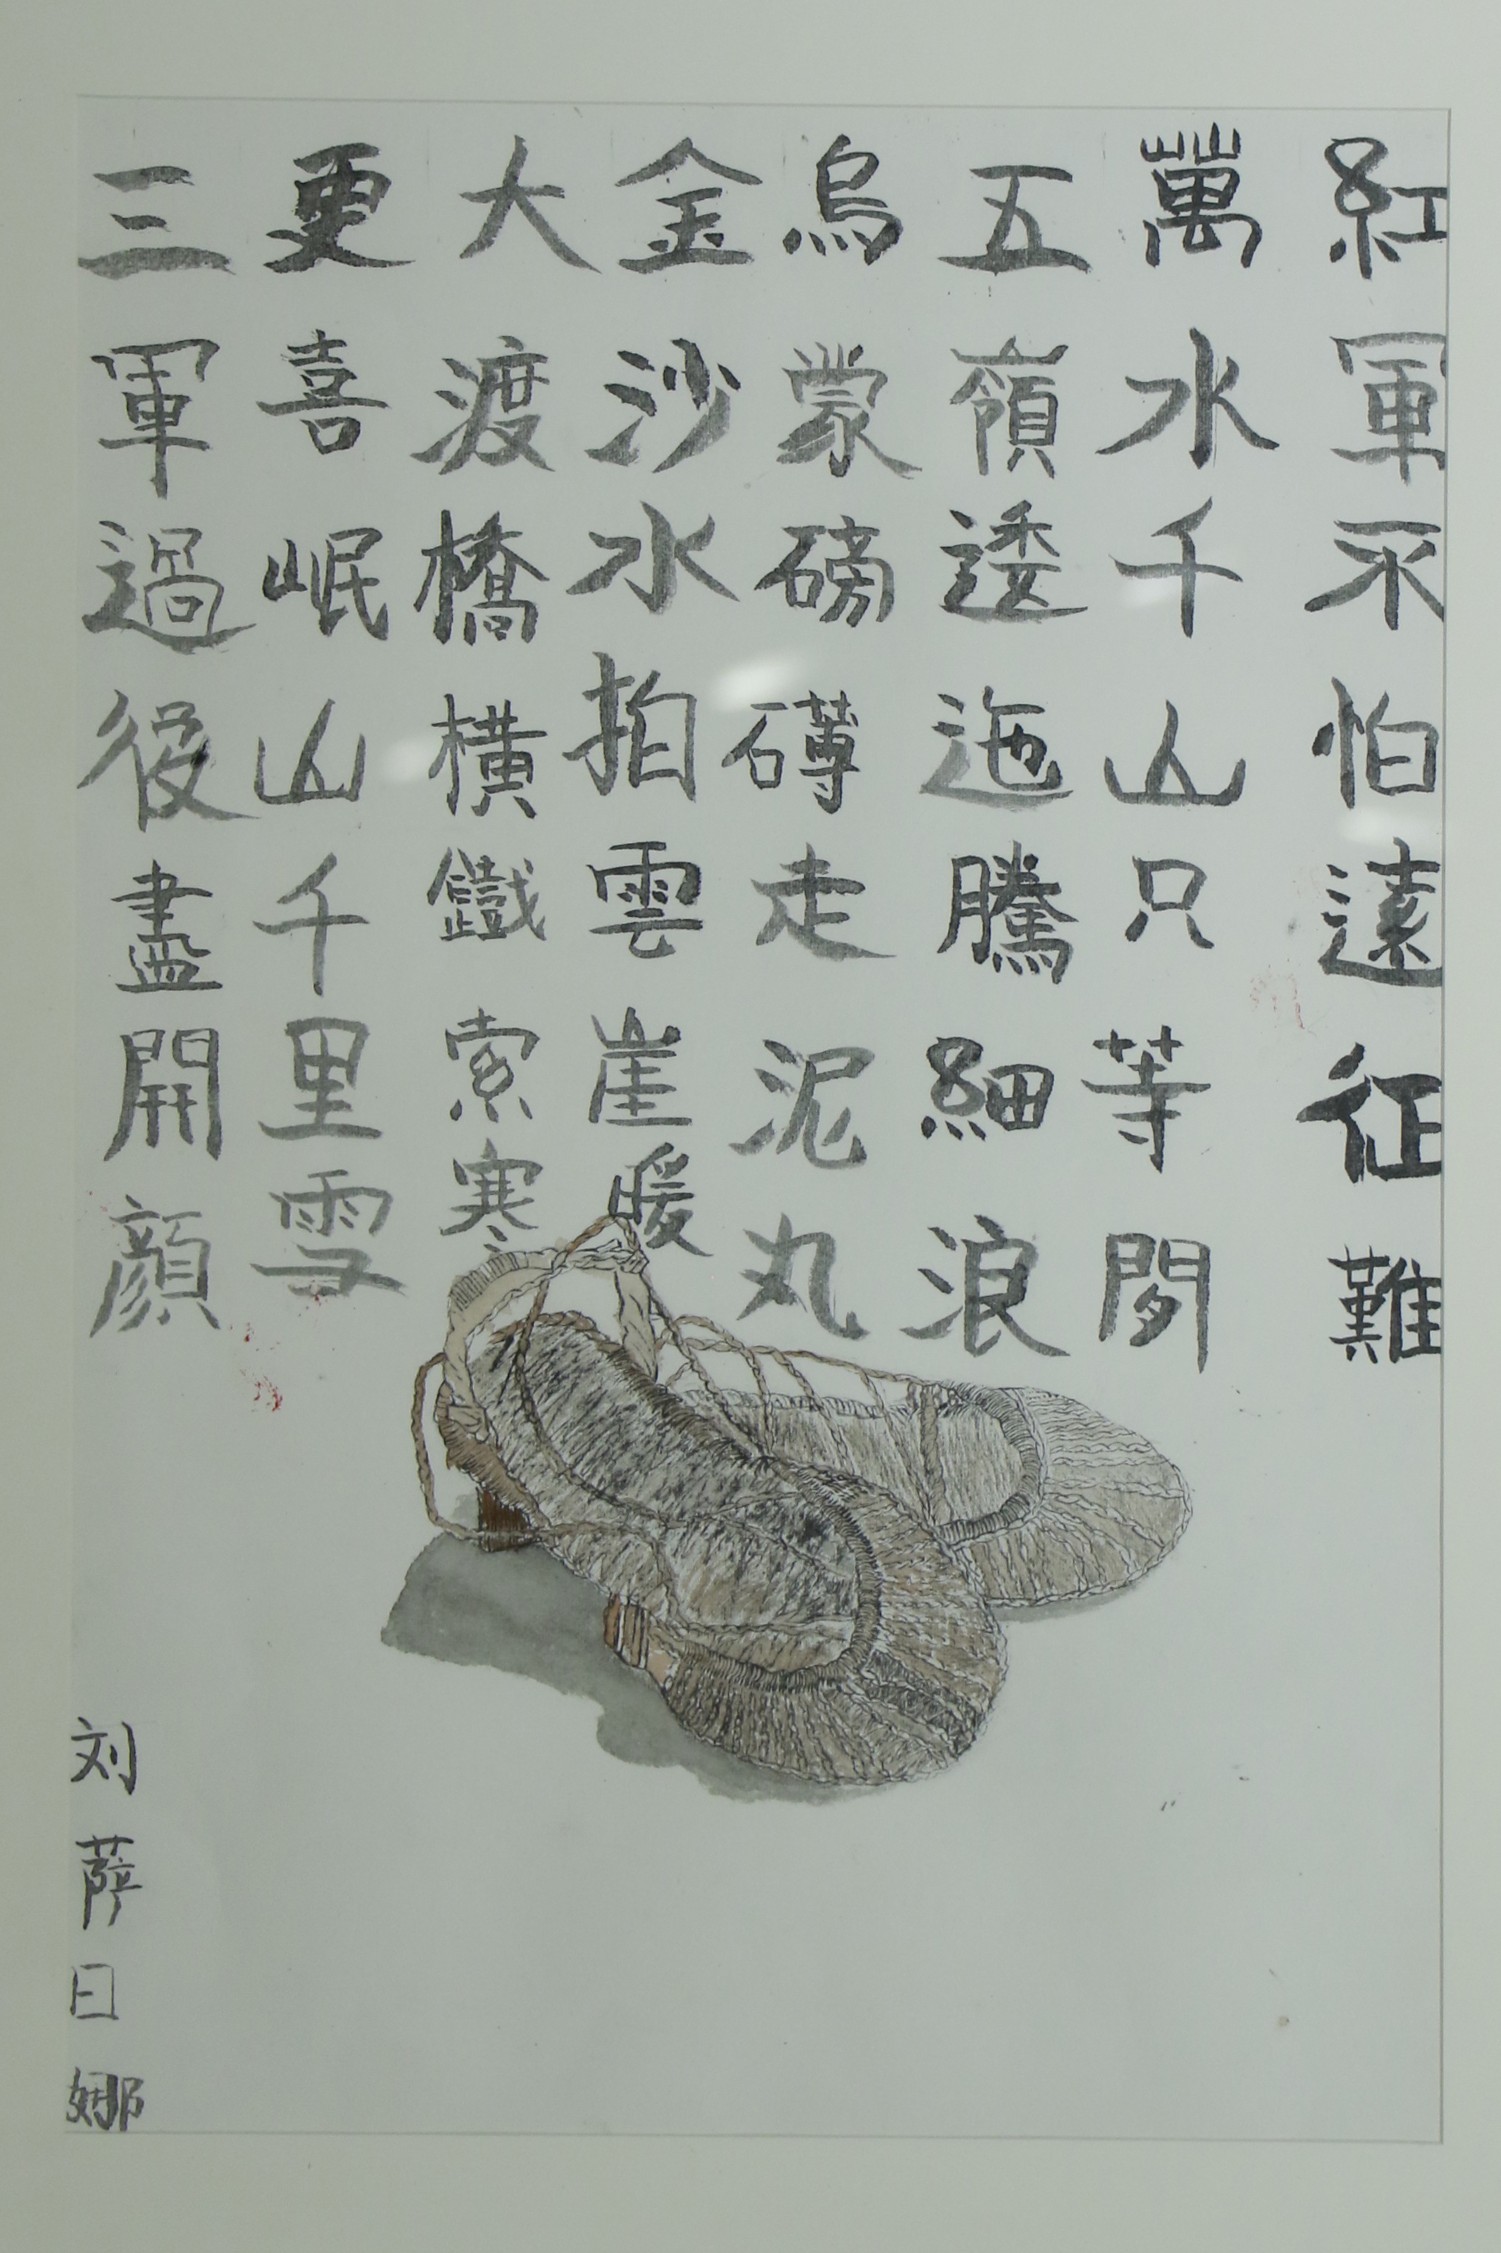 紅軍不怕遠征難
萬水千山只等閒
五嶺逶迤騰細浪
烏蒙磅礴走泥丸
金沙水拍雲崖暖
大渡橋橫鐵索寒
更喜岷山千里雪
三軍過後盡開顏
刘萨日娜